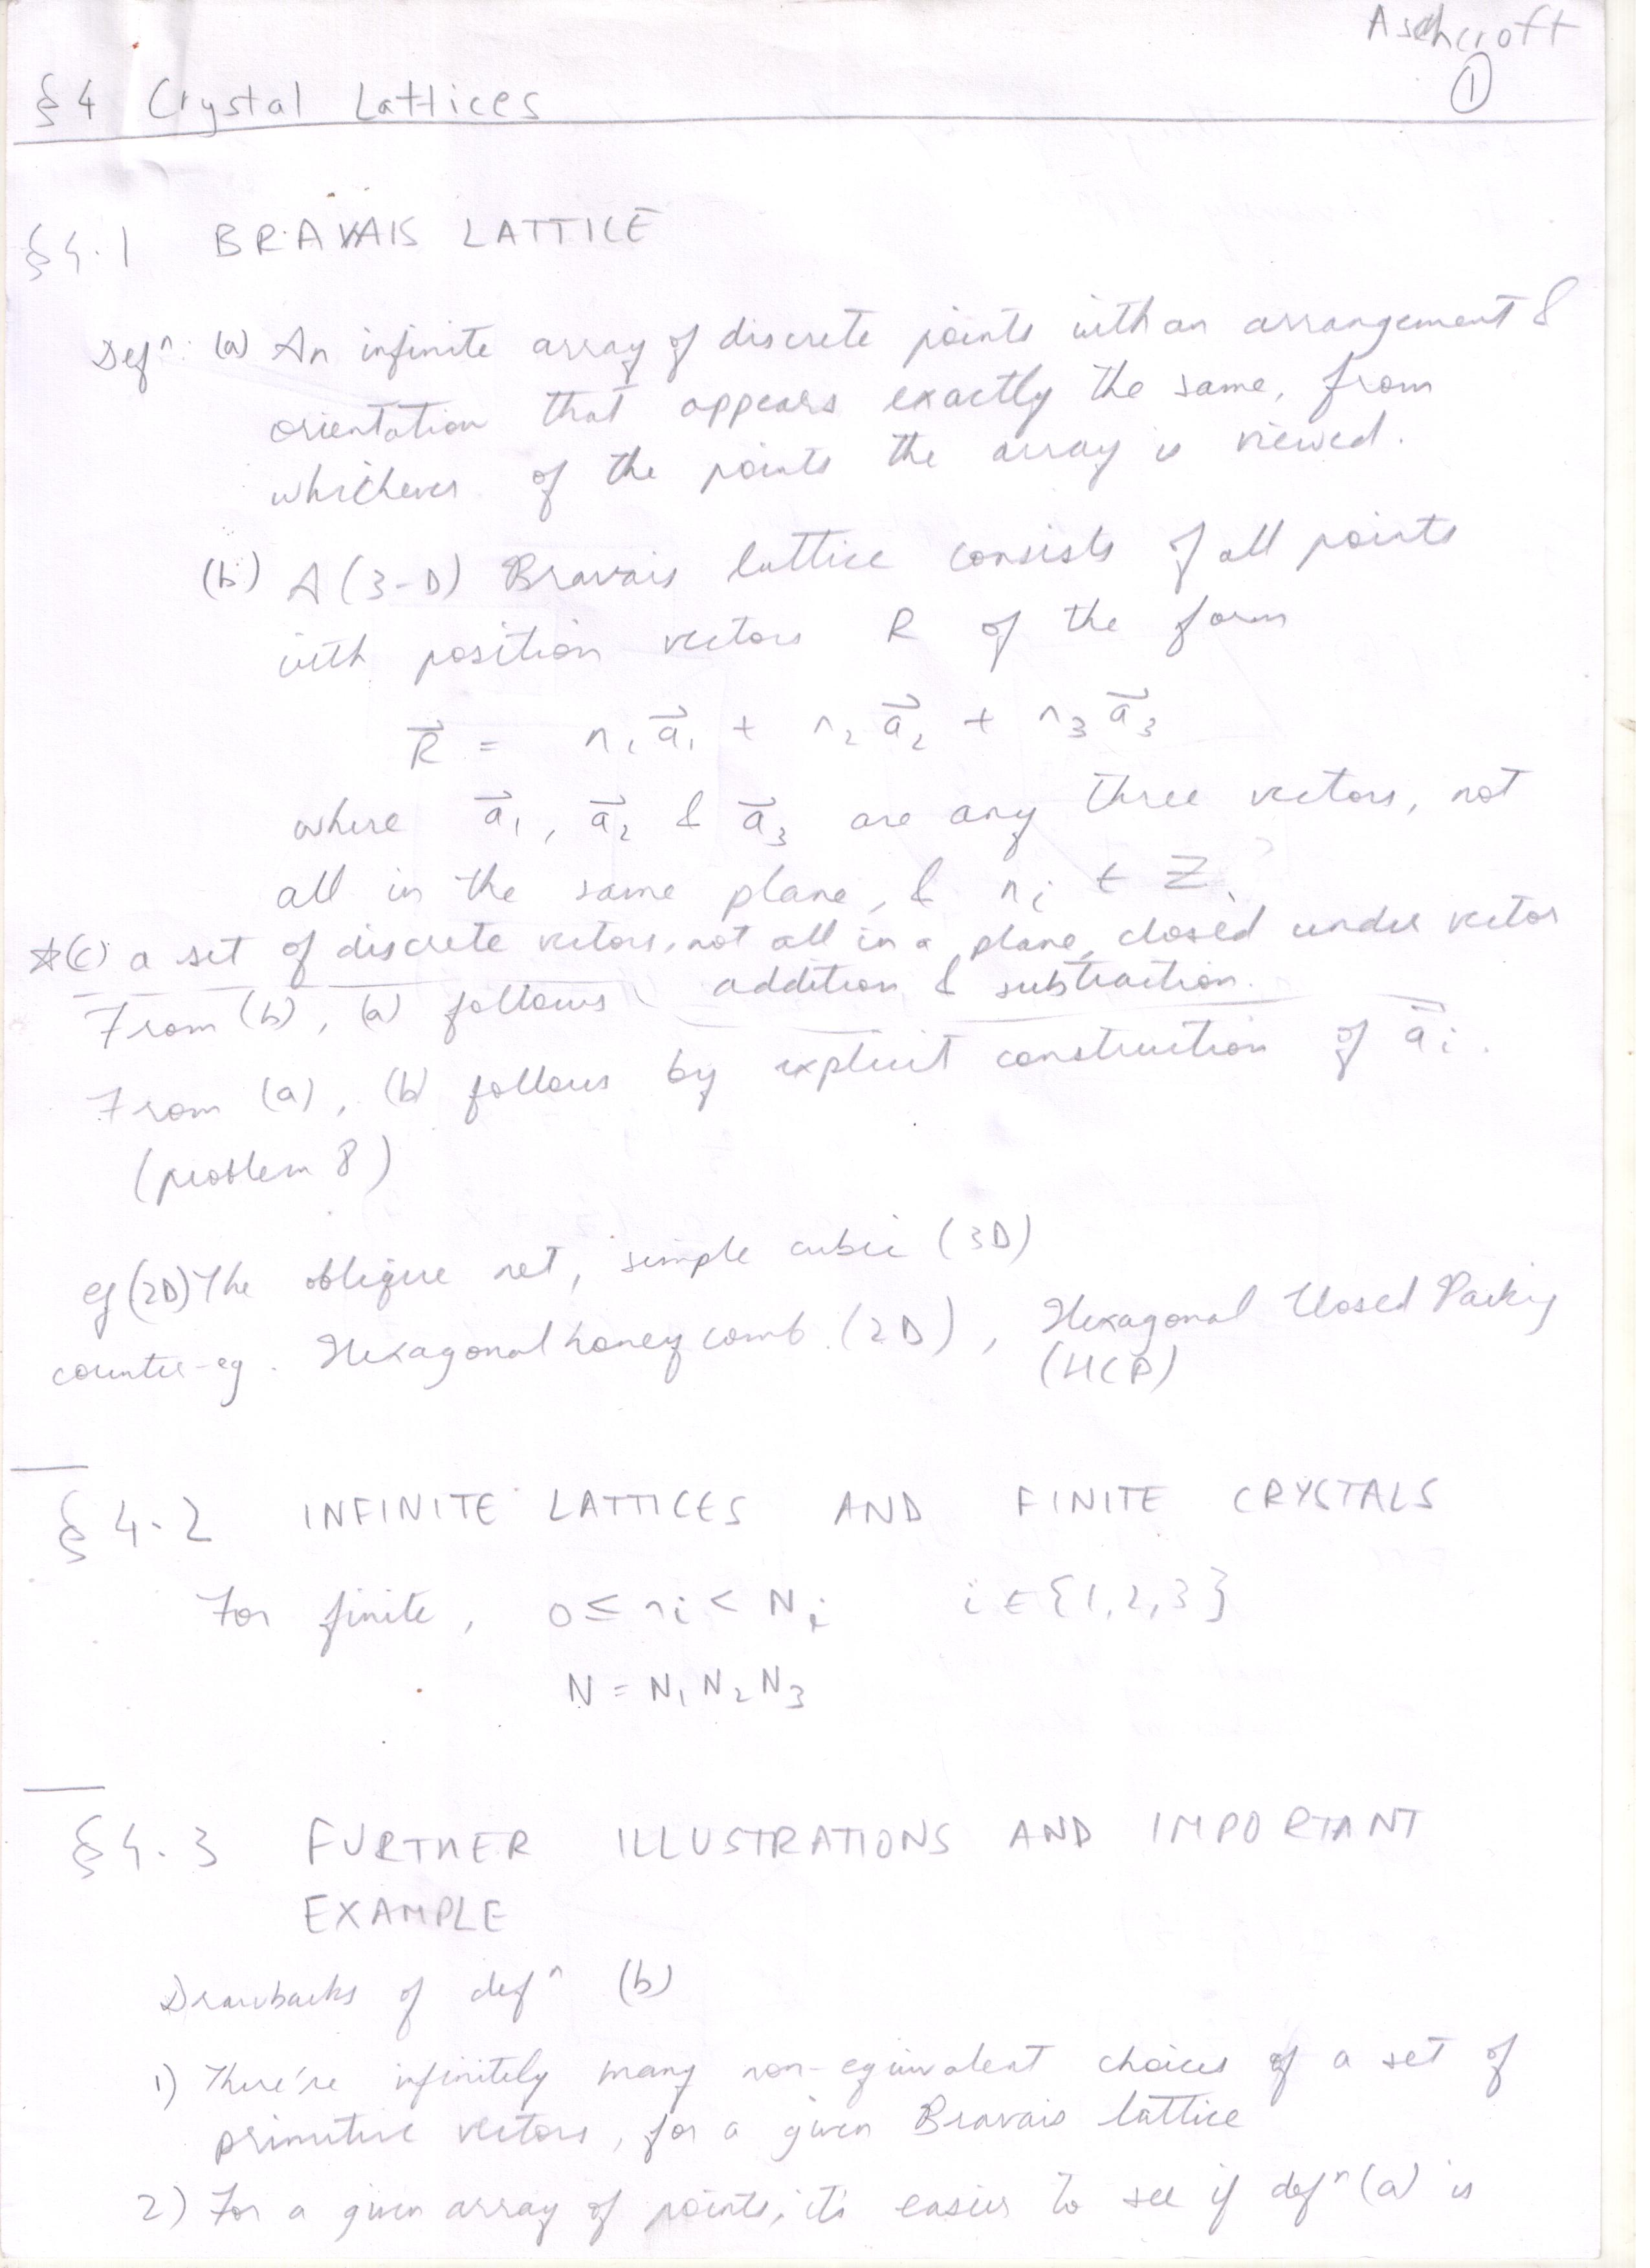 Aschcroft
①
§4 Crystal Lattices
§4.1 BRAVAIS LATTICE
Defⁿ: (a) An infinite array of discrete points with an arrangement &
orientation that appears exactly the same, from
whichever of the points the array is viewed.
(b) A (3-D) Bravais lattice consists of all points
with position vectors R of the form
R⃗ = n₁a⃗₁ + n₂a⃗₂ + n₃a⃗₃
where a⃗₁, a⃗₂ & a⃗₃ are any three vectors, not
all in the same plane, & nᵢ ∈ Z.
*(c) a set of discrete vectors, not all in a plane, closed under vector
addition & subtraction.
From (b), (a) follows
From (a), (b) follows by explicit construction of a⃗ᵢ.
(problem 8)
eg (2D) The oblique net, simple cubic (3D)
counter-eg. Hexagonal honey comb. (2D), Hexagonal Closed Packing
(HCP)
§4.2 INFINITE LATTICES AND FINITE CRYSTALS
For finite, 0 ≤ nᵢ < Nᵢ i ∈ {1,2,3}
N = N₁N₂N₃
§4.3 FURTHER ILLUSTRATIONS AND IMPORTANT
EXAMPLE
Drawbacks of defⁿ (b)
1) There're infinitely many non-equivalent choices of a set of
primitive vectors, for a given Bravais lattice
2) For a given array of points, it's easier to see if defⁿ (a) is